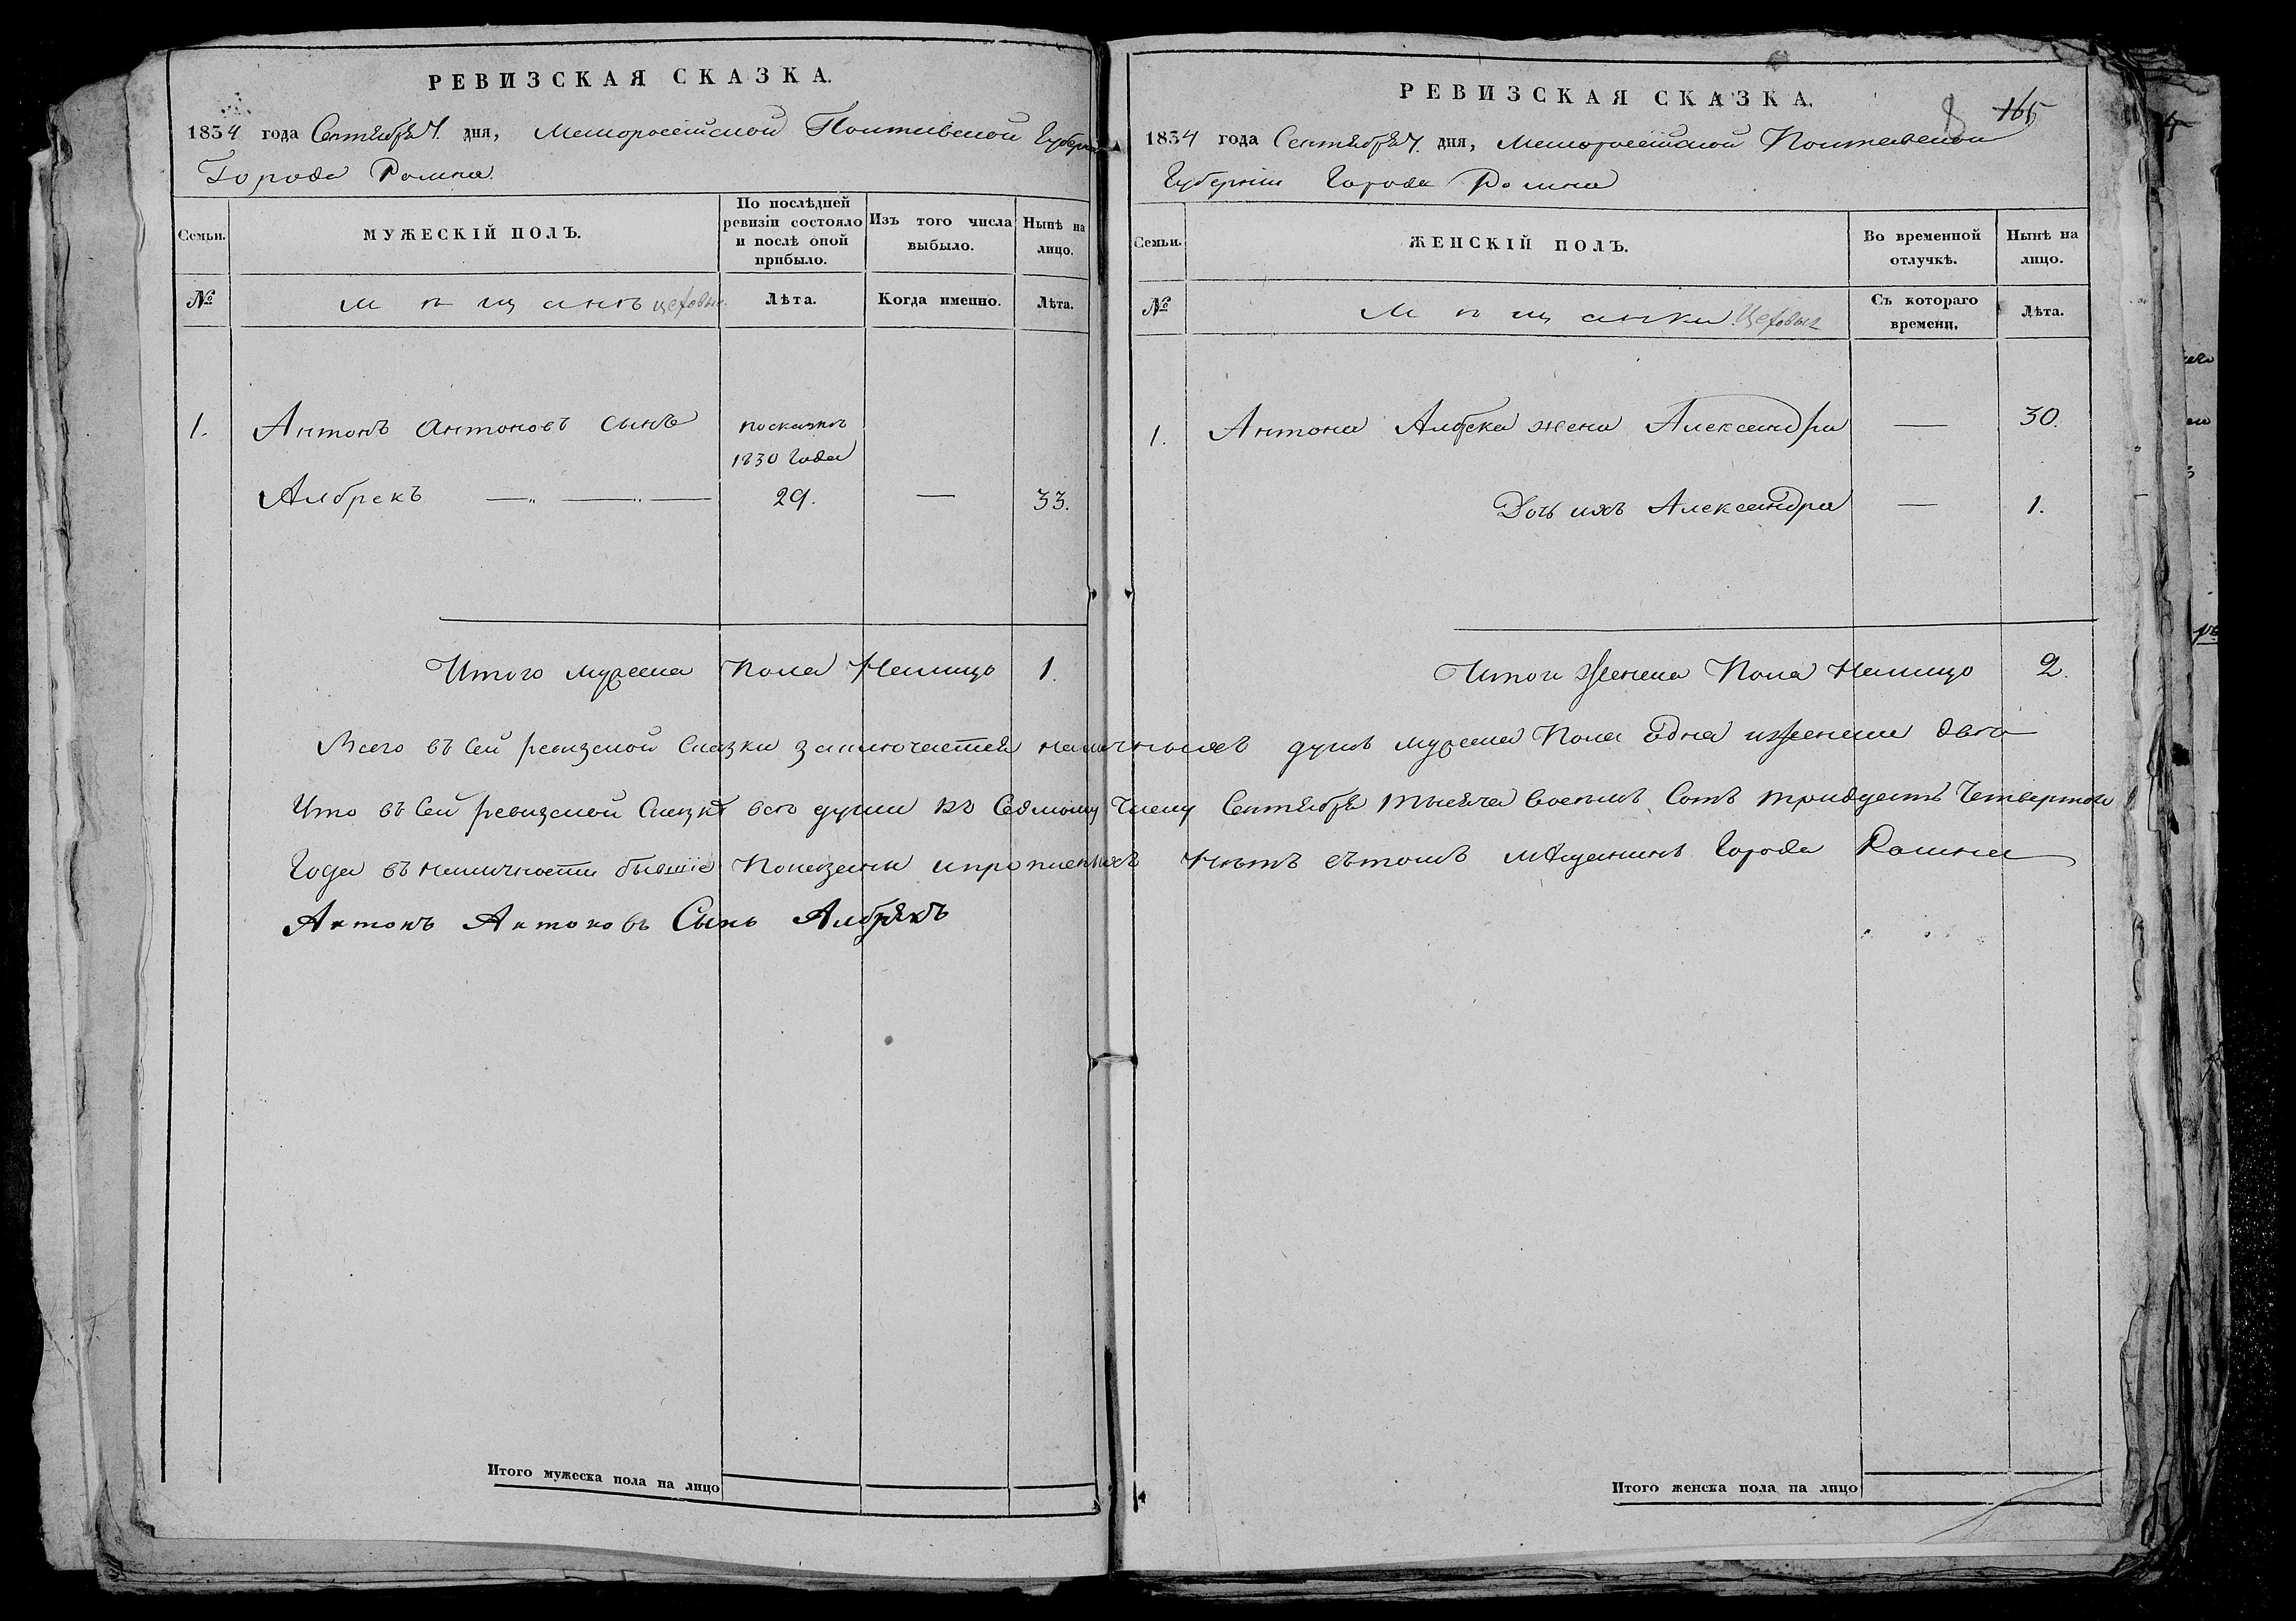 РЕВИЗСКАЯ СКАЗКА.
1834 года Сентября 7. дня, Малороссійской Полтавской Губерніи
Города Ромна.
Семьи.
МУЖЕСКІЙ ПОЛЪ.
По послѣдней
ревизіи состояло
и послѣ оной
прибыло.
Изъ того числа
выбыло.
Нынѣ на
лицо.
№
Мѣщанъ цеховых
Лѣта.
Когда именно.
Лѣта.
1. Антонъ Антоновъ сынъ
посказкѣ
1830 года
Албрекъ 29. — 33.
Итого мужеска Пола Налицо 1.
Итого мужеска пола на лицо
РЕВИЗСКАЯ СКАЗКА.
8 165
1834 года Сентября 7. дня, Малороссійской Полтавской
Губерніи Города Ромна
Семьи.
ЖЕНСКІЙ ПОЛЪ.
Во временной
отлучкѣ.
Нынѣ на
лицо.
№
Мѣщанки Цеховыя
Съ котораго
времени.
Лѣта.
1. Антона Албрека жена Александра — 30.
Дочь ихъ Александра — 1.
Итого Женска Пола Налицо 2.
Всего въ Сей ревизской Сказки заключается наличныхъ душъ мужеска Пола Една иженска двѣ
Что въ Сей ревизской Сказкѣ всѣ души къ Седмому Числу Сентября тысяча восемь Сотъ тридцать Четвертого
Года въ наличности бывшіе Показаны ипрописныхъ Нѣтъ вътомъ мѣщанинъ Города Ромна
Антонъ Антоновъ Сынъ Албрякъ
Итого женска пола на лицо